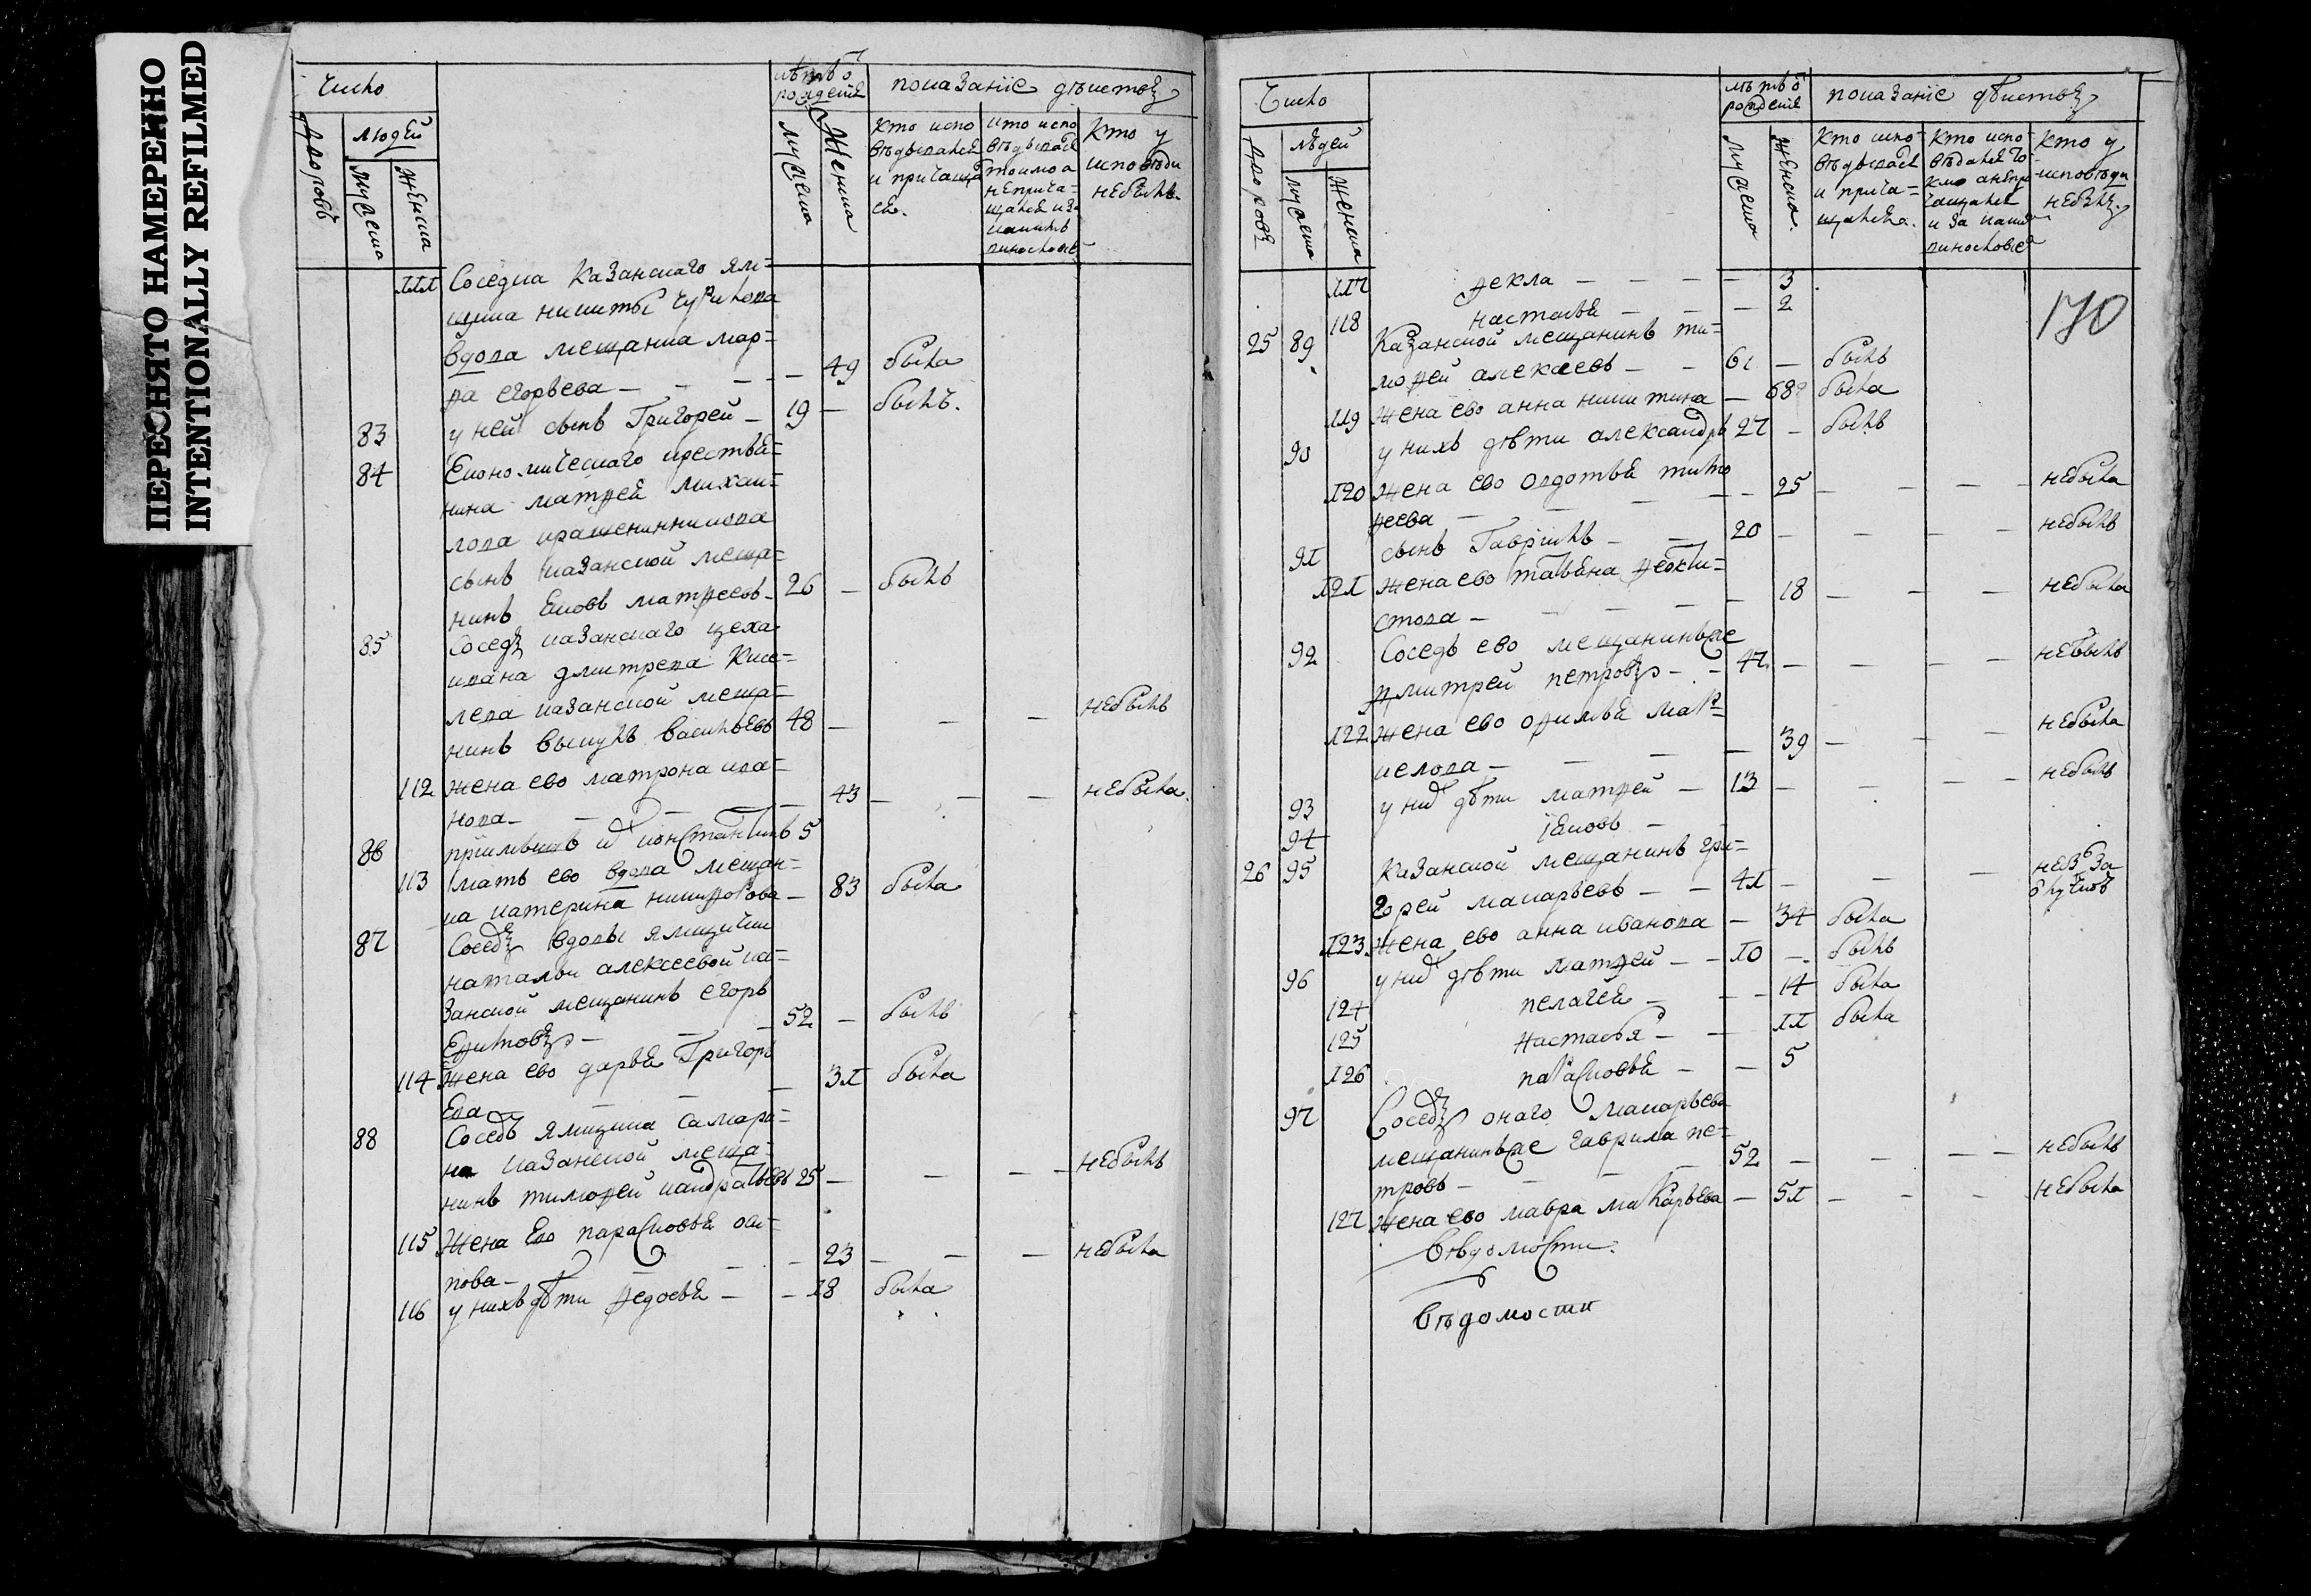 ПЕРЕСНЯТО НАМЕРЕННО
INTENTIONALLY REFILMED
Число
лѣтъ ѿ рожденія
показаніе дѣиствъ
дворовъ
людей
мужеска
женска
мужеска
женска
кто испо
вѣдывался
и причаща
ся.
кто испо
вѣдывался
токмо а
неприча-
щался и за
какимъ
винословіе
Кто у
исповѣди
небылъ
111 Соседка Казанскаго ям-
щика никиты
вдова мещанка мар-
фа егорьева — — — 49 была
83 у ней сынъ Григорей — 19 — былъ.
84 Економическаго крестья-
нина матфея михаи-
лова крашенинникова
сынъ казанской меща-
нинъ Яковъ матфеевъ 26 — былъ
85 Соседъ казанскаго цеха
ивана дмитрева Кисе-
лева казанской меща-
нинъ викулъ васильевъ 48 — — — небылъ
112 жена ево матрона ива-
нова — — — 43 — — — небыла.
86 пріимышъ их константинъ 5
113 мать ево вдова мещан-
ка катерина никифорова — 83 была
87 Соседъ вдовы ямщички
натальи алексеевой ка-
занской мещанинъ егоръ
Ефимовъ — — — 52 — былъ
114 жена ево дарья Григорь
ева — — — 31 была
88 Соседъ ямщика самари-
на казанской меща-
нинъ тимофей кандратьевъ 25 — — — небылъ
115 жена Ево парасковья оси-
пова — — — 23 — — — небыла
116 у нихъ дѣти федосья — — 18 была
Число
лѣтъ ѿ рожденія
показаніе дѣиствъ
дворовъ
людей
мужеска
женска
мужеска
женска
Кто испо-
вѣдывался
и прича-
щался.
Кто испо-
вѣдался то
кмо а непри
чащался
и за каким
винословіе
кто у
исповѣди
небылъ.
170
117 фекла — — — 3
118 настасья — — — 2
25 89 Казанской мещанинъ ти-
мофей алексеевъ — — 61 — былъ
119 жена ево анна никитина — 68 была
90 у нихъ дѣти александръ 27 — былъ
120 жена ево авдотья тимо
феева — — — 25 — — — небыла
91 сынъ Гаврилъ — — 20 — — — небылъ
121 жена ево татьяна феокти-
стова — — — 18 — — — небыла
92 Соседъ ево мещанинъ же
дмитрей петровъ — — 47 — — — небылъ
122 жена ево офимья мар-
келова — — — 39 — — — небыла
93 у них дѣти матфей — 13 — — — небылъ
94 Яковъ — —
26 95 Казанской мещанинъ гри-
горей макарьевъ — — 41 — — — небъ за
ѿлучкою
123 жена ево анна иванова — 34 была
96 у них дѣти матфей — — 10 — былъ
124 пелагея — — — 14 была
125 настасья — — 11 была
126 парасковья — — 5
97 Соседъ онаго макарьева
мещанинъ же гаврила пе-
тровъ — — — 52 — — — небылъ
127 жена ево мавра макарьева — 51 — — — небыла
Вѣдомости.
Вѣдомости